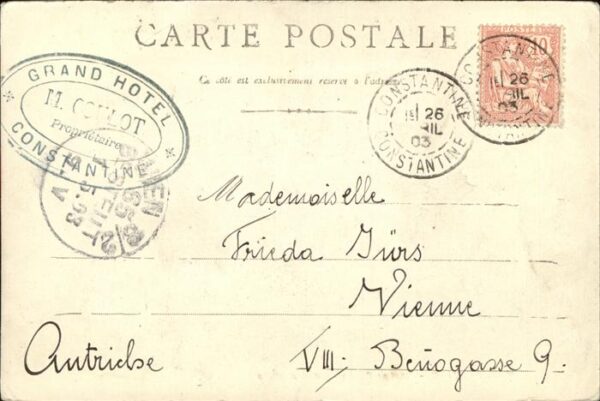 CARTE POSTALE
Ce côté est exclusivement réservé à l'adresse
GRAND HOTEL
M. COULOT
Propriétaire
CONSTANTINE
CONSTANTINE
26
03
CONSTANTINE
CONSTANTINE
26
03
10
WIEN
Mademoiselle
Frieda Jürs
Vienne
Autriche
VIII. Bennogasse 9.